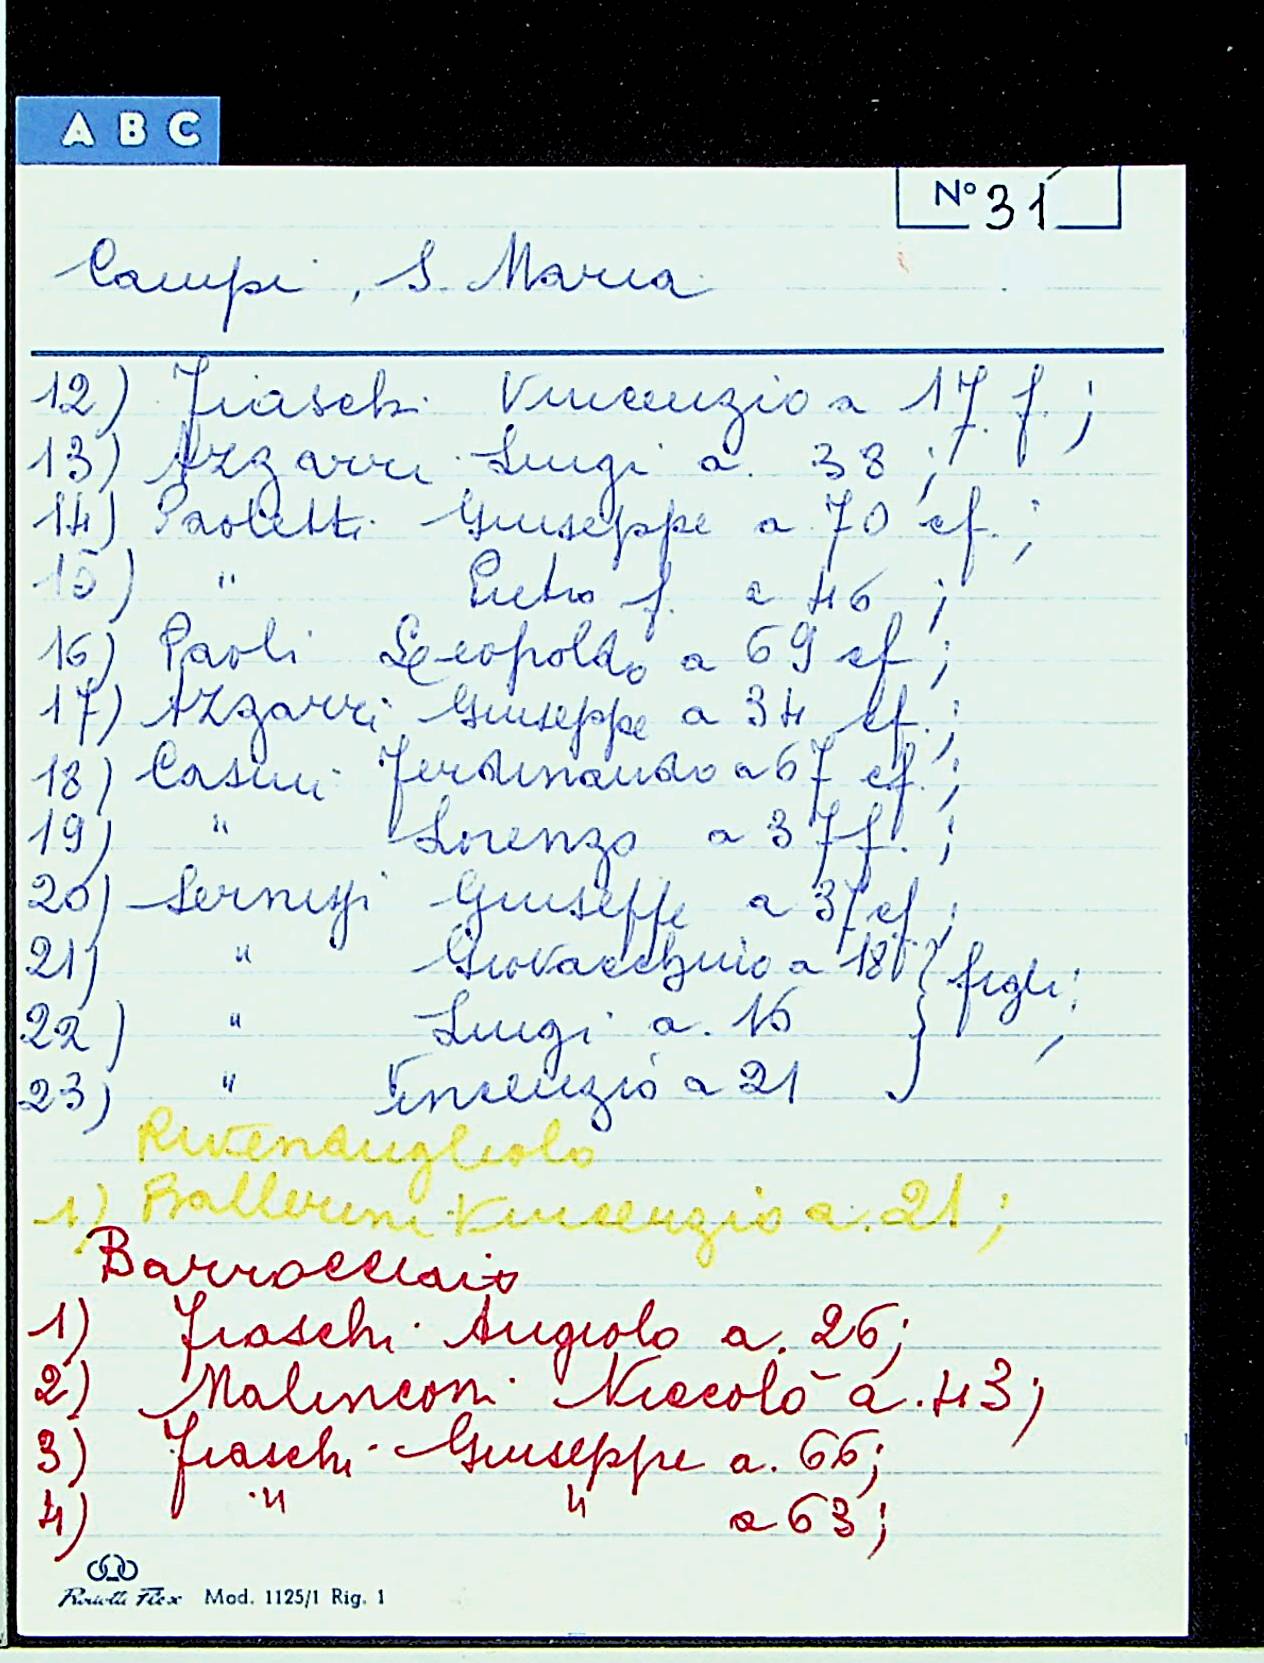 A B C
Nº 31
Campi, S. Maria
12) Fiaschi Vincenzio a 17. f.;
13) Azzarri Luigi a. 38;
14) Paoletti Giuseppe a 70 cf.;
15) " Pietro f. a 46;
16) Paoli Leopoldo a 69 cf;
17) Azzarri Giuseppe a 34 cf.;
18) Casini Ferdinando a 67 cf.;
19) " Lorenzo a 37 f.;
20) Sernissi Giuseppe a 37 cf;
21) " Giovacchino a 18 } figli;
22) " Luigi a. 16
23) " Vincenzio a 21
Rivendugliolo
1) Ballerini Vincenzio a. 21;
Barrocciaio
1) Fiaschi Angiolo a. 26;
2) Malinconi Niccolò a. 43;
3) Fiaschi Giuseppe a. 66;
4) " " a 63;
Mod. 1125/1 Rig. 1